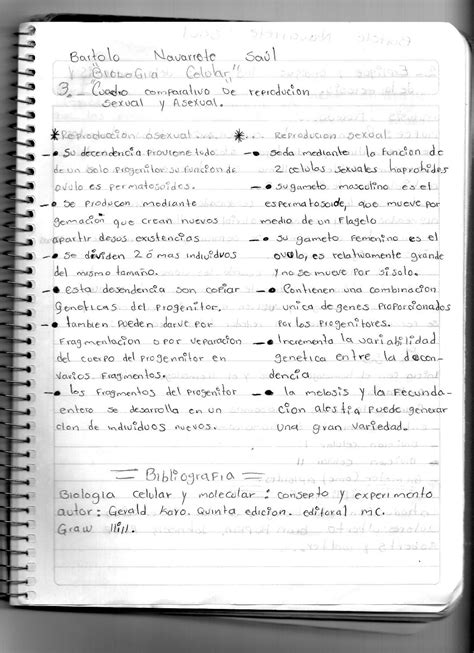 Bartolo Navarrete Saúl
"Biologia Celular"
3. Cuadro comparativo de reproducion
sexual y Asexual.
* Reproducción asexual.
- Su decendencia proviene todo
de un solo progenitor su funcion de
ovulo es permatosoides.
- Se producen mediante
gemacion que crean nuevos
apartir desus existencias
- Se dividen 2 ó mas individuos
del mismo tamaño.
- esta desendencia son copiar
Geneticas del progenitor.
- tambien pueden darve por
Fragmentacion o por veparacion
del cuerpo del progennitor en
varios Fragmentos.
- los Fragmentos del progenitor
entero se desarrolla en un
cion de individuos nuevos.
* Reproduccion sexual.
- seda mediante la funcion de
2 celulas sexuales haplotides
- sugameto masculino es el
espermatosoide, que mueve por
medio de un Flagelo
- su gameto femenino es el
ovulo, es relativamente grande
y no se mueve por sisolo.
- Contienen una combinacion
unica de genes proporcionados
por los progenitores.
- Incrementa la variabilidad
genetica entre la decen-
dencia
- la meiosis y la Fecunda-
cion puede generar
una gran variedad.
= Bibliografia =
Biologia celular y molecular: consepto y experimento
autor: Gerald Karo. Quinta edicion. editoral mc.
Graw Hill.